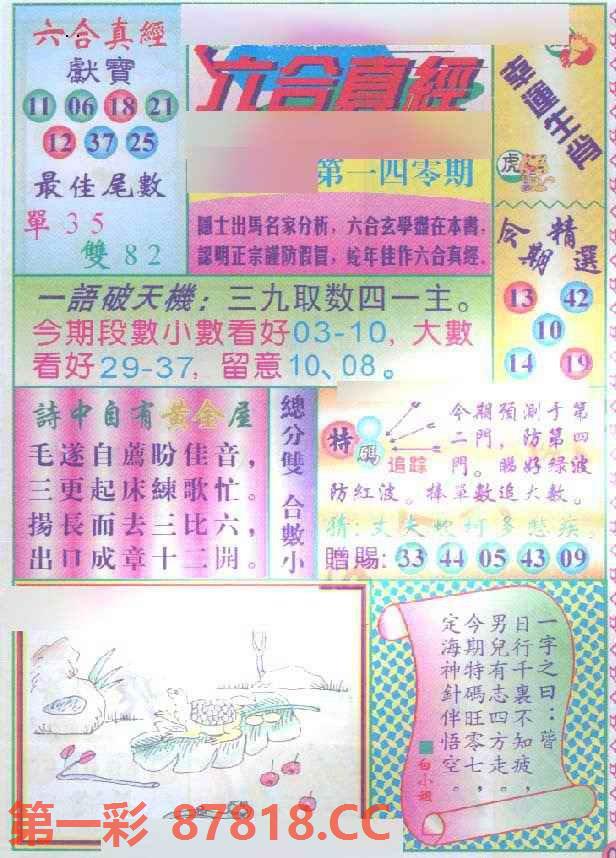 六合真經
獻寶
11 06 18 21
12 37 25
最佳尾數
單 3 5
雙 8 2
六合真經
第一四零期
隱士出馬名家分析，六合玄學盡在本書，
認明正宗謹防假冒，蛇年佳作六合真經。
幸運生肖
虎
今期精選
13 42
10
14 19
一語破天機：三九取数四一主。
今期段數小數看好03-10，大數
看好29-37，留意10、08。
詩中自有黃金屋
毛遂自薦盼佳音，
三更起床練歌忙。
揚長而去三比六，
出口成章十二開。
總分雙 合數小
特碼
追踪
今期預測于第
二門，防第四
門。睇好緑波
防紅波。捧單數追大數。
贈賜：33 44 05 43 09
一字之曰：皆
日行千裏不知疲，
男兒有志四方走。
今期特碼旺零七，
定海神針伴悟空。
白小姐
第一彩 87818.CC